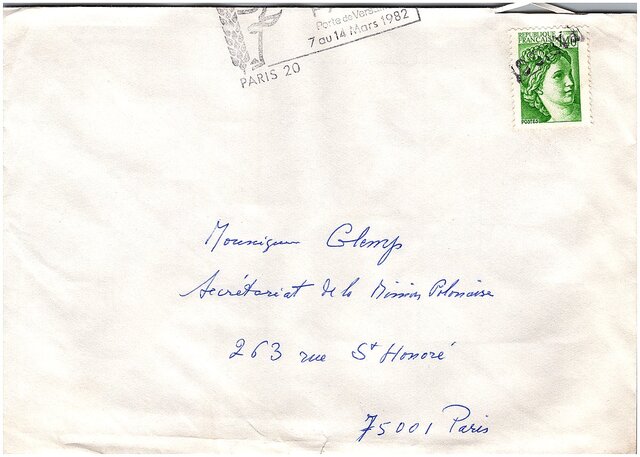 Porte de Versai
7 au 14 Mars 1982
PARIS 20
REPUBLIQUE
FRANCAISE
POSTES
Monseigneur Glemp
Secrétariat de la Mission Polonaise
263 rue St Honoré
75001 Paris